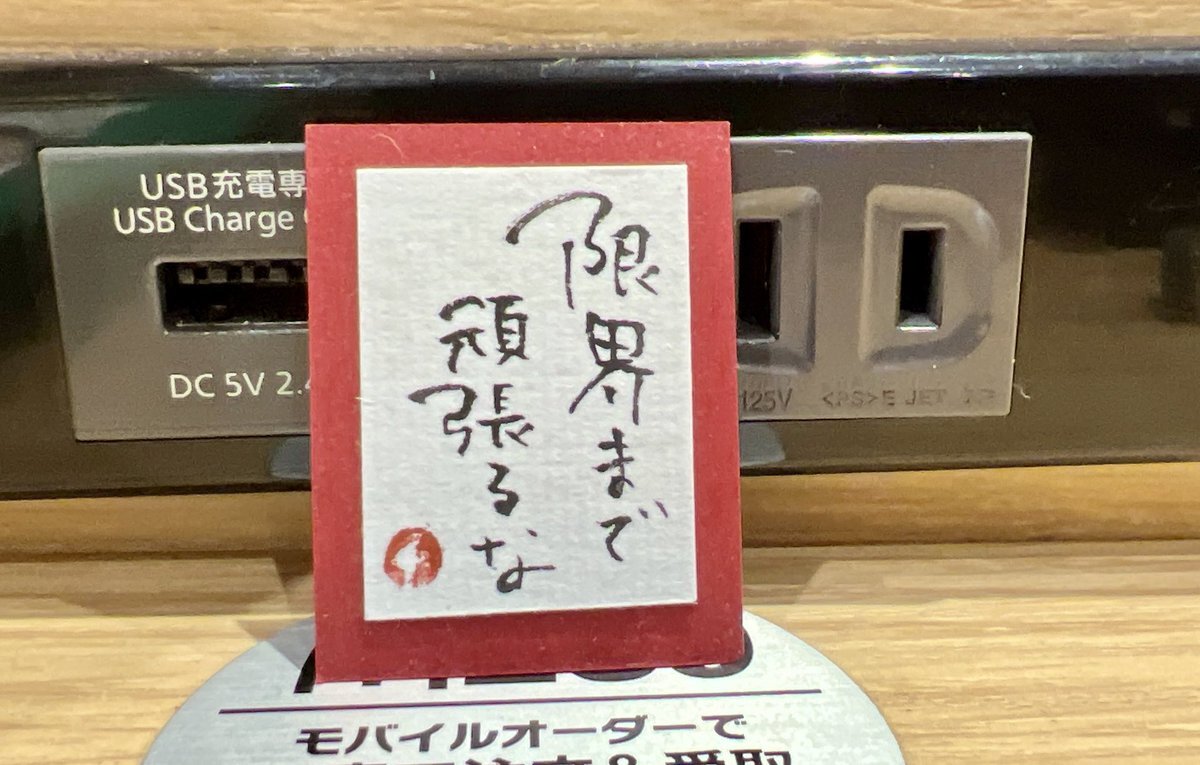 USB充電専
USB Charge
DC 5V 2.
限界まで
頑張るな
125V
<PS>E JET
モバイルオーダーで